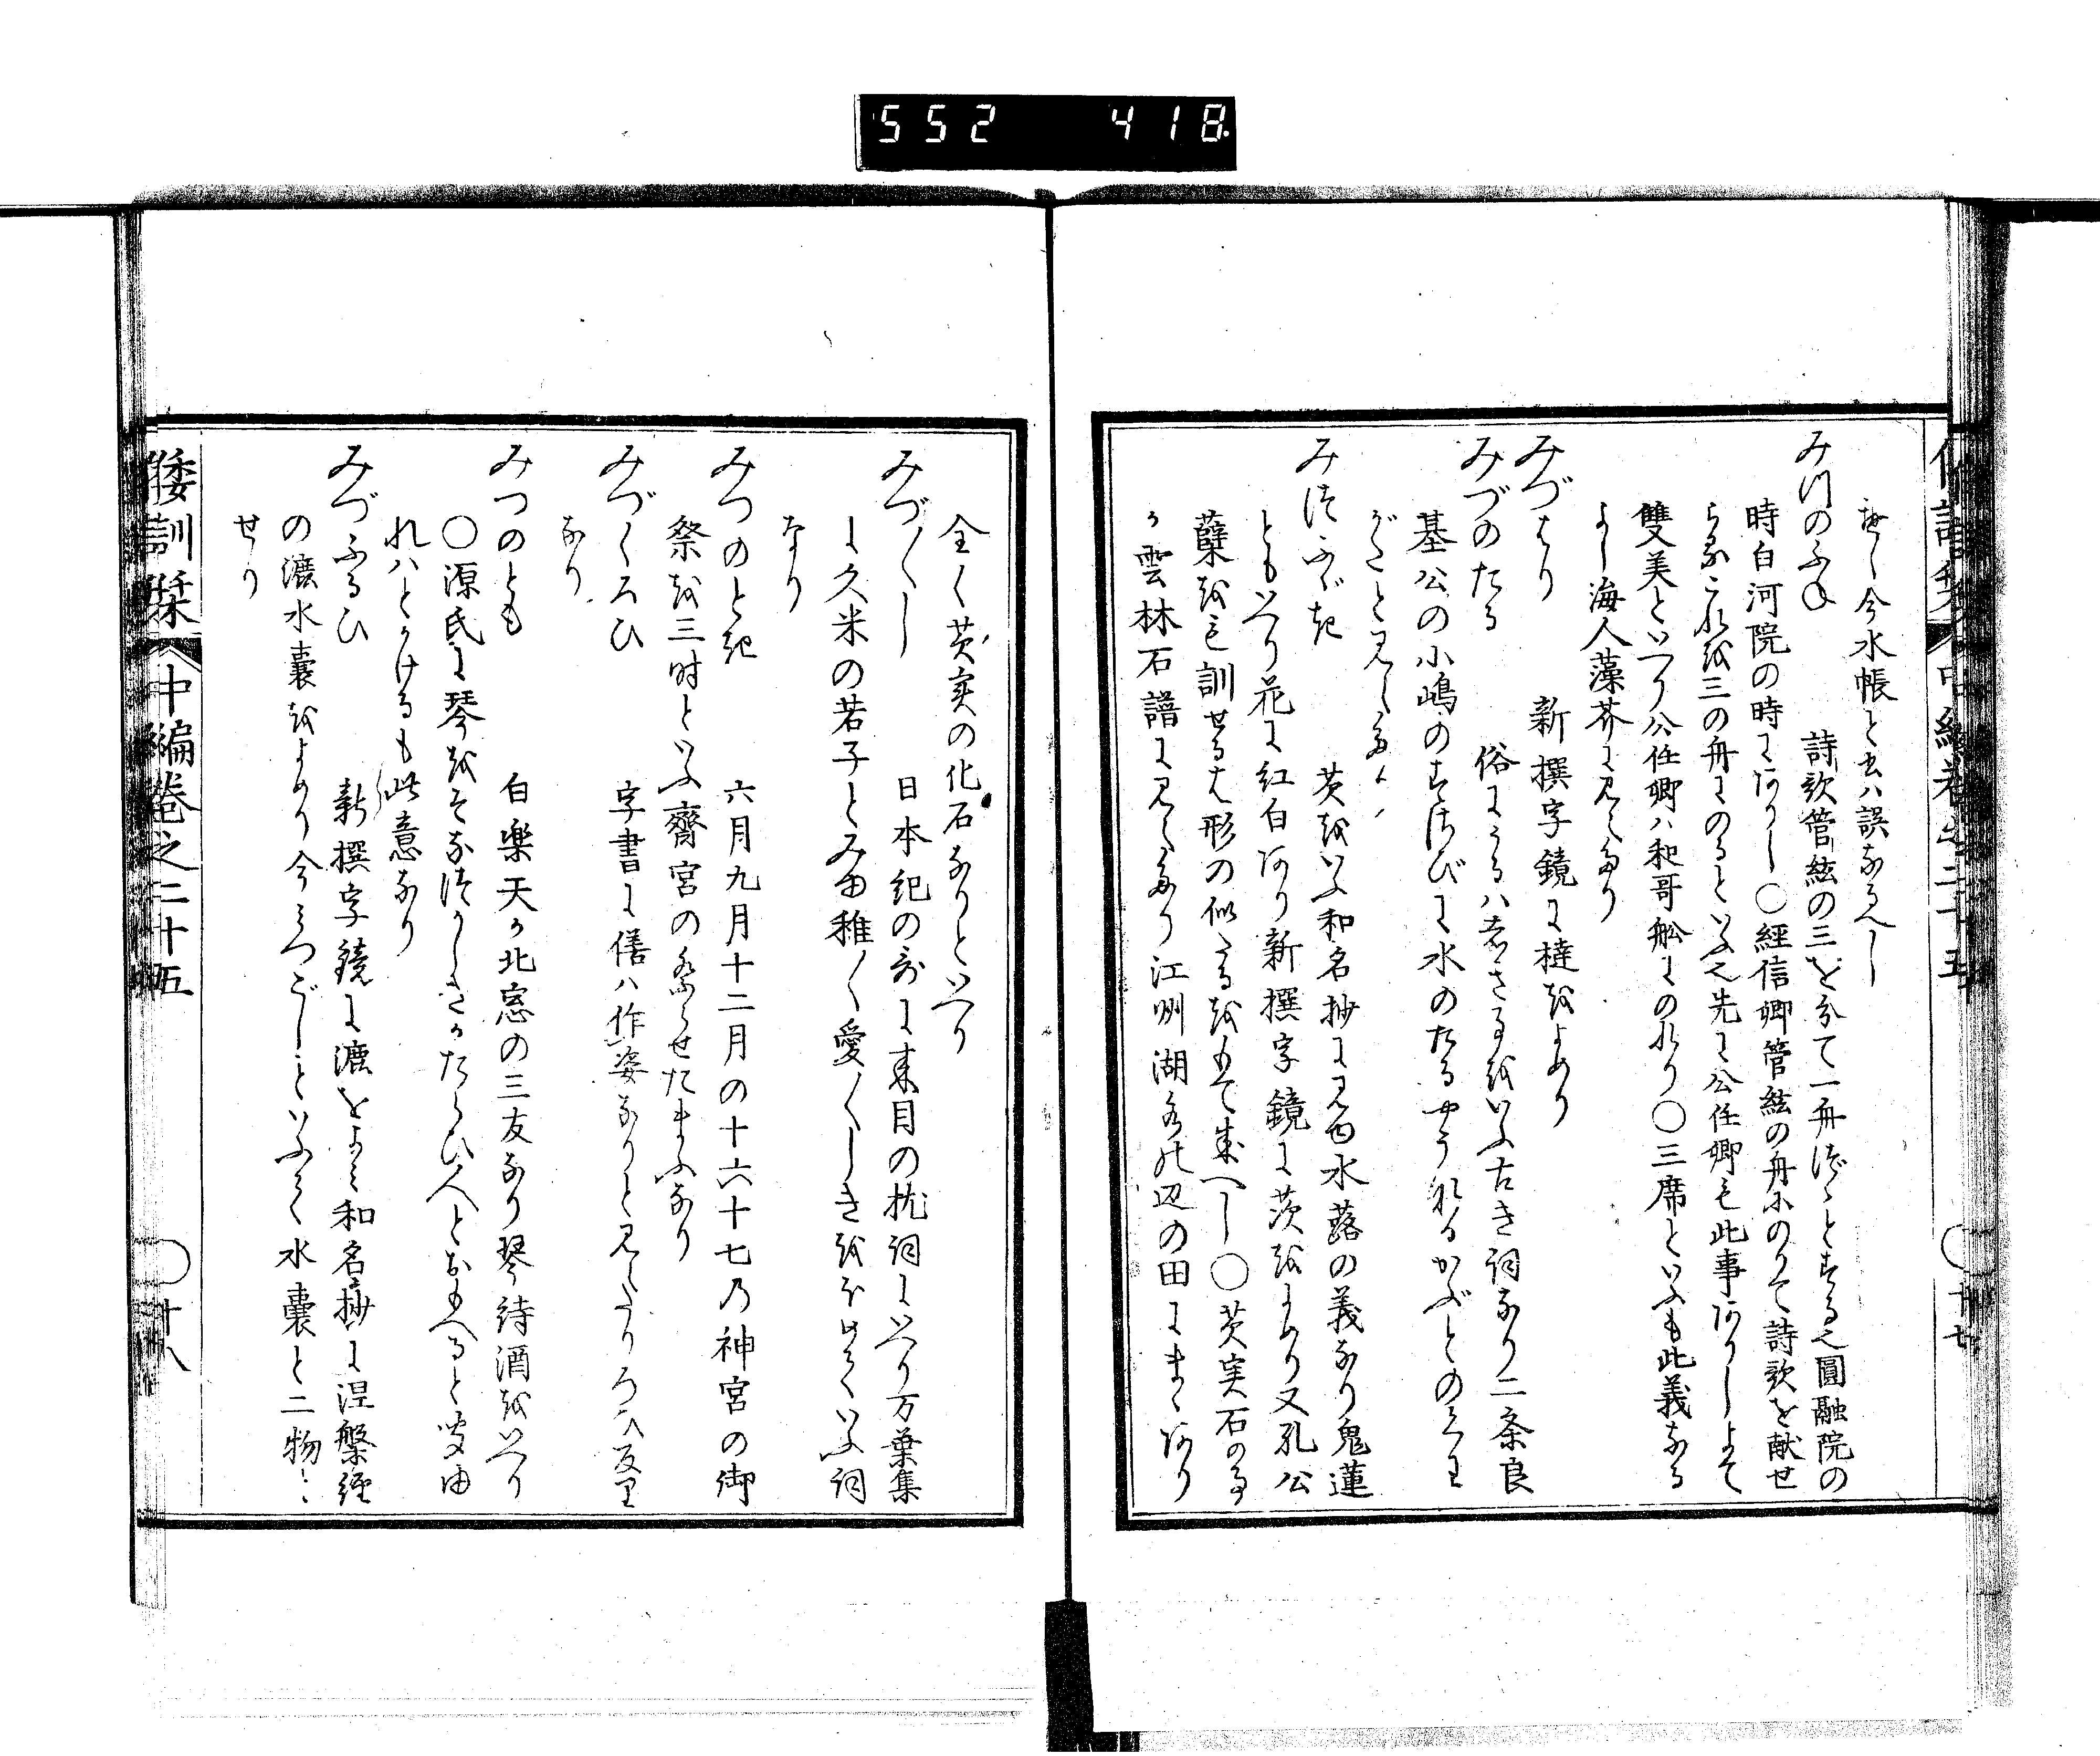 552 418
今水帳と云ハ誤なるへし
みつのふね 詩歌管絃の三を分て一舟づゝとする也圓融院の
時白河院の時にありし〇經信卿管絃の舟にのりて詩歌を献せ
らるこれを三の舟にのるといふ也先に公任卿も此事ありしよて
雙美といへり公任卿ハ和哥舩にのれり〇三席といふも此義なる
よし海人藻芥に見えたり
みづはり 新撰字鏡に橽をよめり
みづのたる 俗にうるハしきさまをいふ古き詞なり二条良
基公の小嶋のすさびに水のたるやうなるかぶとのくわ
がたと見えたり
みづふゞき 芡をいふ和名抄に見ゆ水蕗の義なり鬼蓮
ともいへり花に紅白あり新撰字鏡に茨をよめり又孔公
蘖をも訓せるは形の似たるをもて成へし〇芡実石の事
か雲林石譜に見えたり江州湖水の辺の田にまゝあり
倭訓栞 中編巻之二十五 〇十七
全く芡実の化石なりといへり
みづ〳〵し 日本紀の哥に来目の枕詞にいへり万葉集
に久米の若子とみゆ稚く愛〳〵しきをほめていふ詞
なり
みつのとき 六月九月十二月の十六十七乃神宮の御
祭を三時といふ齋宮の参らせたまふなり
みづくろひ 字書に僐ハ作姿なりと見えたりろひ反り
なり
みつのとも 白楽天か北窓の三友なり琴詩酒をいへり
〇源氏に琴をそなつかしきかたらひ人とおもへると聞ゆ
れハとかけるも此意なり
みづふるひ 新撰字鏡に漉をよみ和名抄に涅槃經
の漉水嚢をよめり今みつごしといふて水嚢と二物に
せり
倭訓栞 中編巻之二十五 〇十八